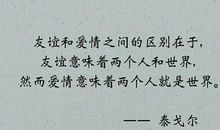 友谊和爱情之间的区别在于，
友谊意味着两个人和世界，
然而爱情意味着两个人就是世界。
—— 泰戈尔